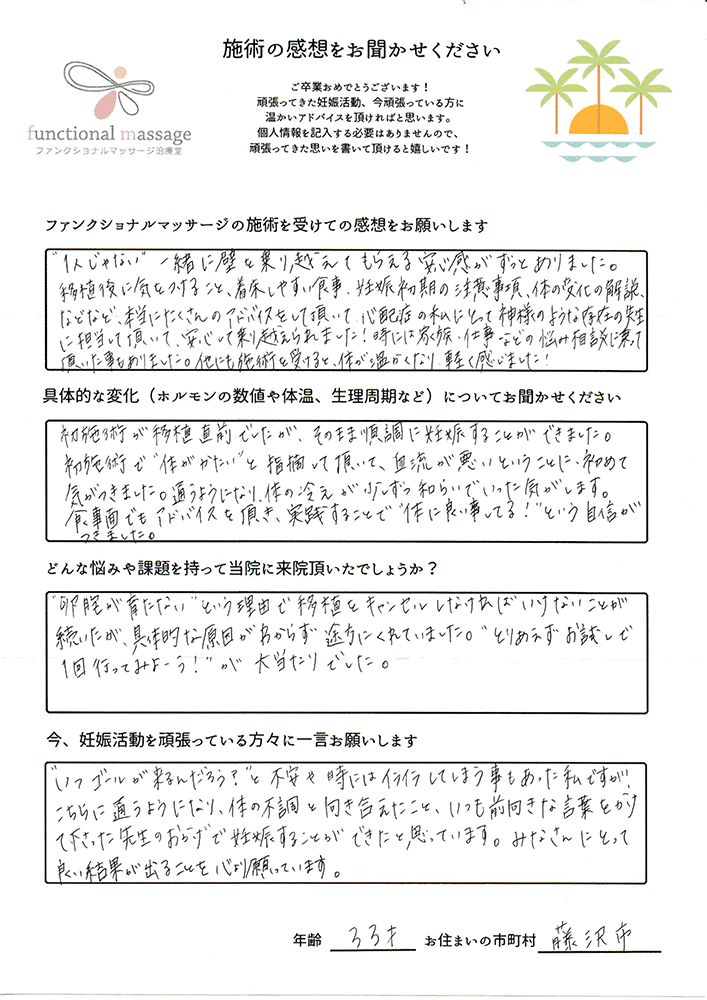 施術の感想をお聞かせください
functional massage
ファンクショナルマッサージ治療室
ご卒業おめでとうございます！
頑張ってきた妊娠活動、今頑張っている方に
温かいアドバイスを頂ければと思います。
個人情報を記入する必要はありませんので、
頑張ってきた思いを書いて頂けると嬉しいです！
ファンクショナルマッサージの施術を受けての感想をお願いします
"1人じゃない" 一緒に壁を乗り越えてもらえる安心感がずっとありました。
移植後に気をつけること、着床しやすい食事、妊娠初期の注意事項、体の変化の解説、
などなど、本当にたくさんのアドバイスをして頂いて、心配症の私にとって神様のような存在の先生
に担当して頂いて、安心して乗り越えられました！時には家族、仕事などの悩み相談に乗って
頂いた事もありました。他にも施術を受けると、体が温かくなり、軽く感じました！
具体的な変化（ホルモンの数値や体温、生理周期など）についてお聞かせください
初施術が移植直前でしたが、そのまま順調に妊娠することができました。
初施術で"体がかたい"と指摘して頂いて、血流が悪いということに、初めて
気がつきました。通うようになり、体の冷えが少しずつ和らいでいった気がします。
食事面でもアドバイスを頂き、実践することで"体に良い事してる！"という自信が
つきました。
どんな悩みや課題を持って当院に来院頂いたでしょうか？
"卵胞が育たない"という理由で移植をキャンセルしなければいけないことが
続いたが、具体的な原因がわからず途方にくれていました。"とりあえずお試しで
1回行ってみよーう！"が大当たりでした。
今、妊娠活動を頑張っている方々に一言お願いします
"いつゴールが来るんだろう？"と不安や時にはイライラしてしまう事もあった私ですが、
こちらに通うようになり、体の不調と向き合えたこと、いつも前向きな言葉をかけ
て下さった先生のおかげで妊娠することができたと思っています。みなさんにとって
良い結果が出ることを心より願っています。
年齢 33才 お住まいの市町村 藤沢市